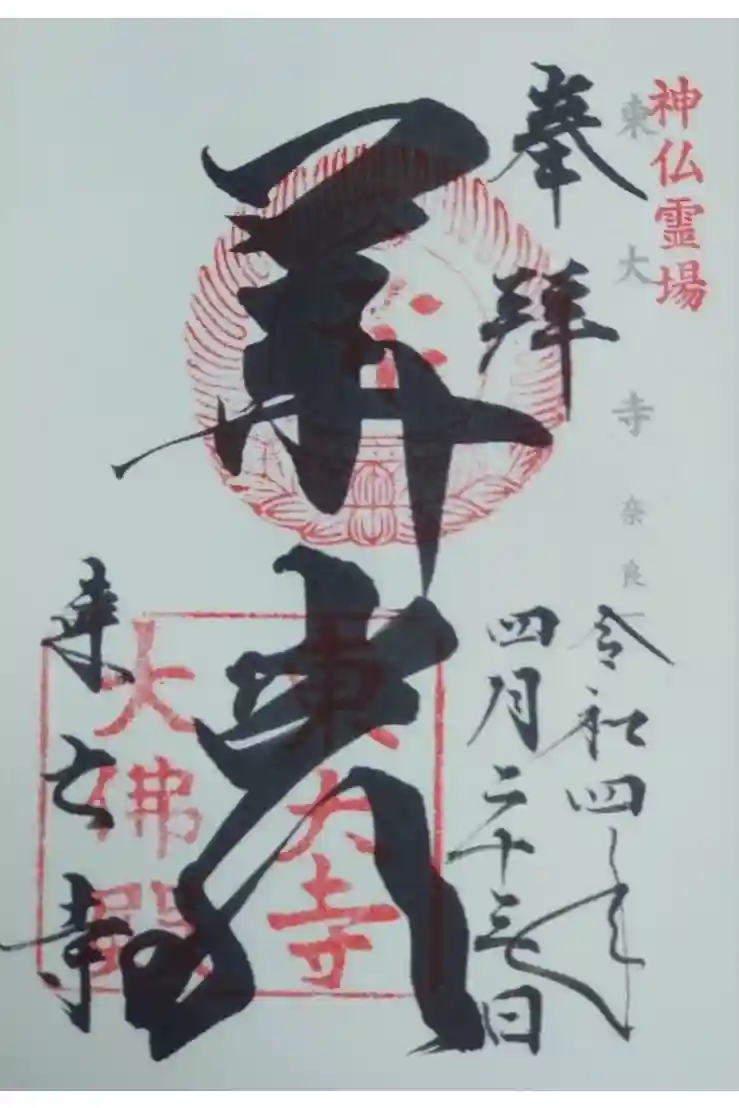 神仏霊場
東大寺 奈良
奉拝
令和四年
四月二十三日
華厳
東大寺
大佛殿
東大寺